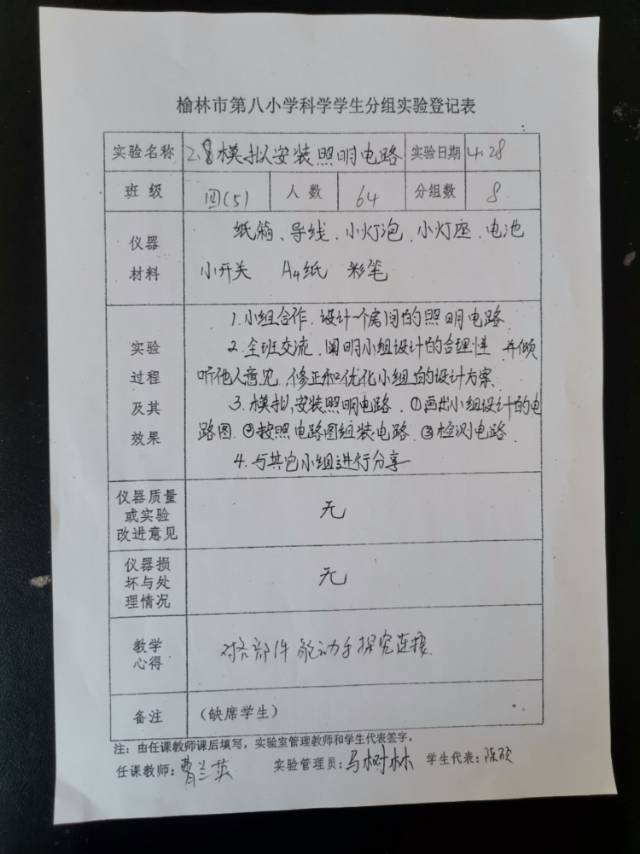 榆林市第八小学科学学生分组实验登记表
实验名称 2.8模拟安装照明电路 实验日期 4.28
班 级 四(5) 人 数 64 分组数 8
仪器
材料
纸箱、导线、小灯泡、小灯座、电池
小开关 A4纸 彩笔
实验
过程
及其
效果
1.小组合作、设计一个房间的照明电路
2.全班交流、阐明小组设计的合理性 并倾
听他人意见、修正和优化小组的设计方案
3.模拟安装照明电路 ①画出小组设计的电
路图 ②按照电路图组装电路 ③检测电路.
4.与其它小组进行分享
仪器质量
或实验
改进意见
无
仪器损
坏与处
理情况
无
教学
心得
对各部件能动手探究连接.
备注 (缺席学生)
注：由任课教师课后填写，实验室管理教师和学生代表签字。
任课教师：曹兰英 实验管理员：马树林 学生代表：陈